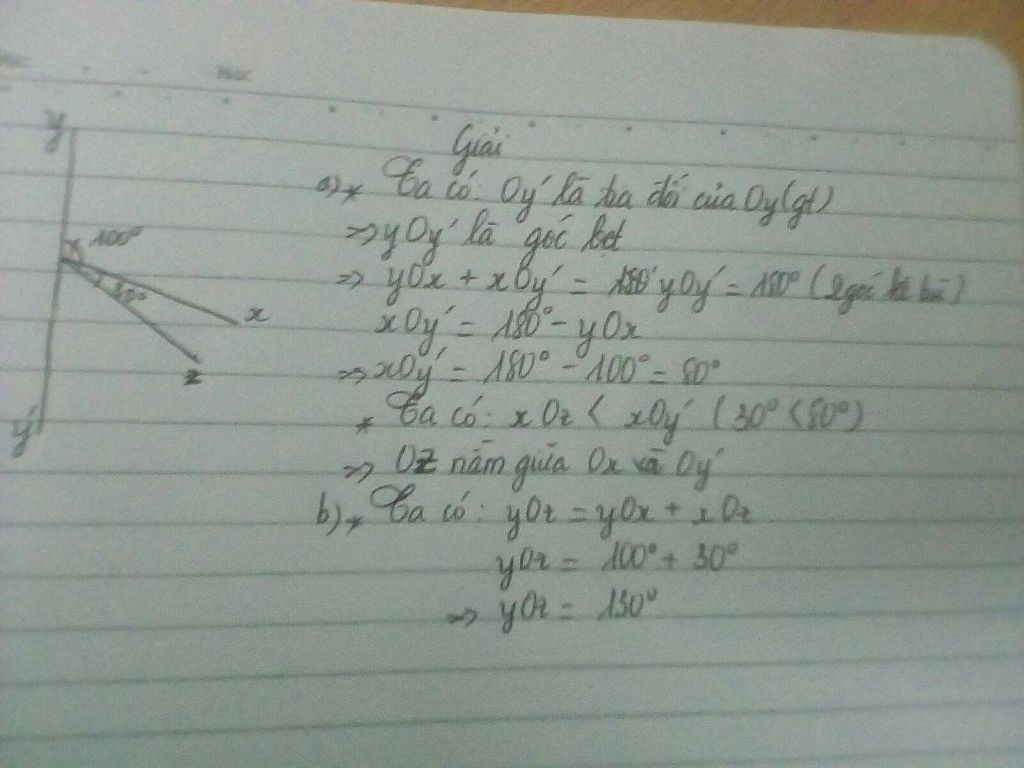 y
100°
30°
x
z
y'
Giải
a)* Ta có: Oy' là tia đối của Oy (gt)
=> yOy' là góc bẹt
=> yOx + xOy' = yOy' = 180° (2 góc kề bù)
xOy' = 180° - yOx
=> xOy' = 180° - 100° = 80°
* Ta có: xOz < xOy' (30° < 80°)
=> Oz nằm giữa Ox và Oy'
b)* Ta có: yOz = yOx + xOz
yOz = 100° + 30°
=> yOz = 130°